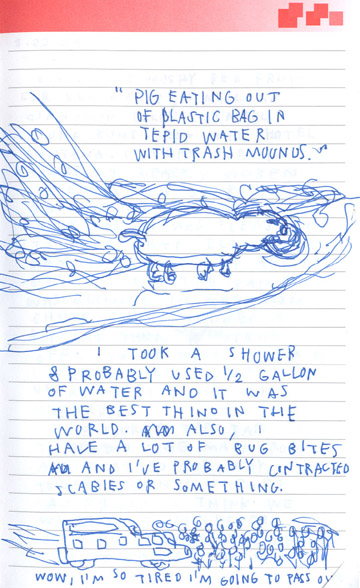 " PIG EATING OUT
OF PLASTIC BAG IN
TEPID WATER
WITH TRASH MOUNDS."
I TOOK A SHOWER
& PROBABLY USED 1/2 GALLON
OF WATER AND IT WAS
THE BEST THING IN THE
WORLD. ALSO, I
HAVE A LOT OF BUG BITES
AND I'VE PROBABLY CONTRACTED
SCABIES OR SOMETHING.
WOW, I'M SO TIRED I'M GOING TO PASS OU